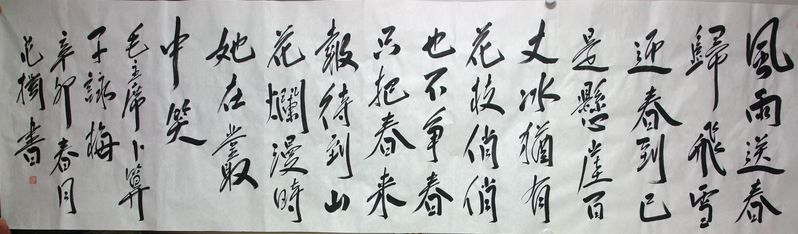 風雨送春
歸飛雪
迎春到已
是懸崖百
丈冰猶有
花枝俏俏
也不争春
只把春来
報待到山
花爛漫時
她在叢
中笑
毛主席卜算
子詠梅
辛卯春月
書